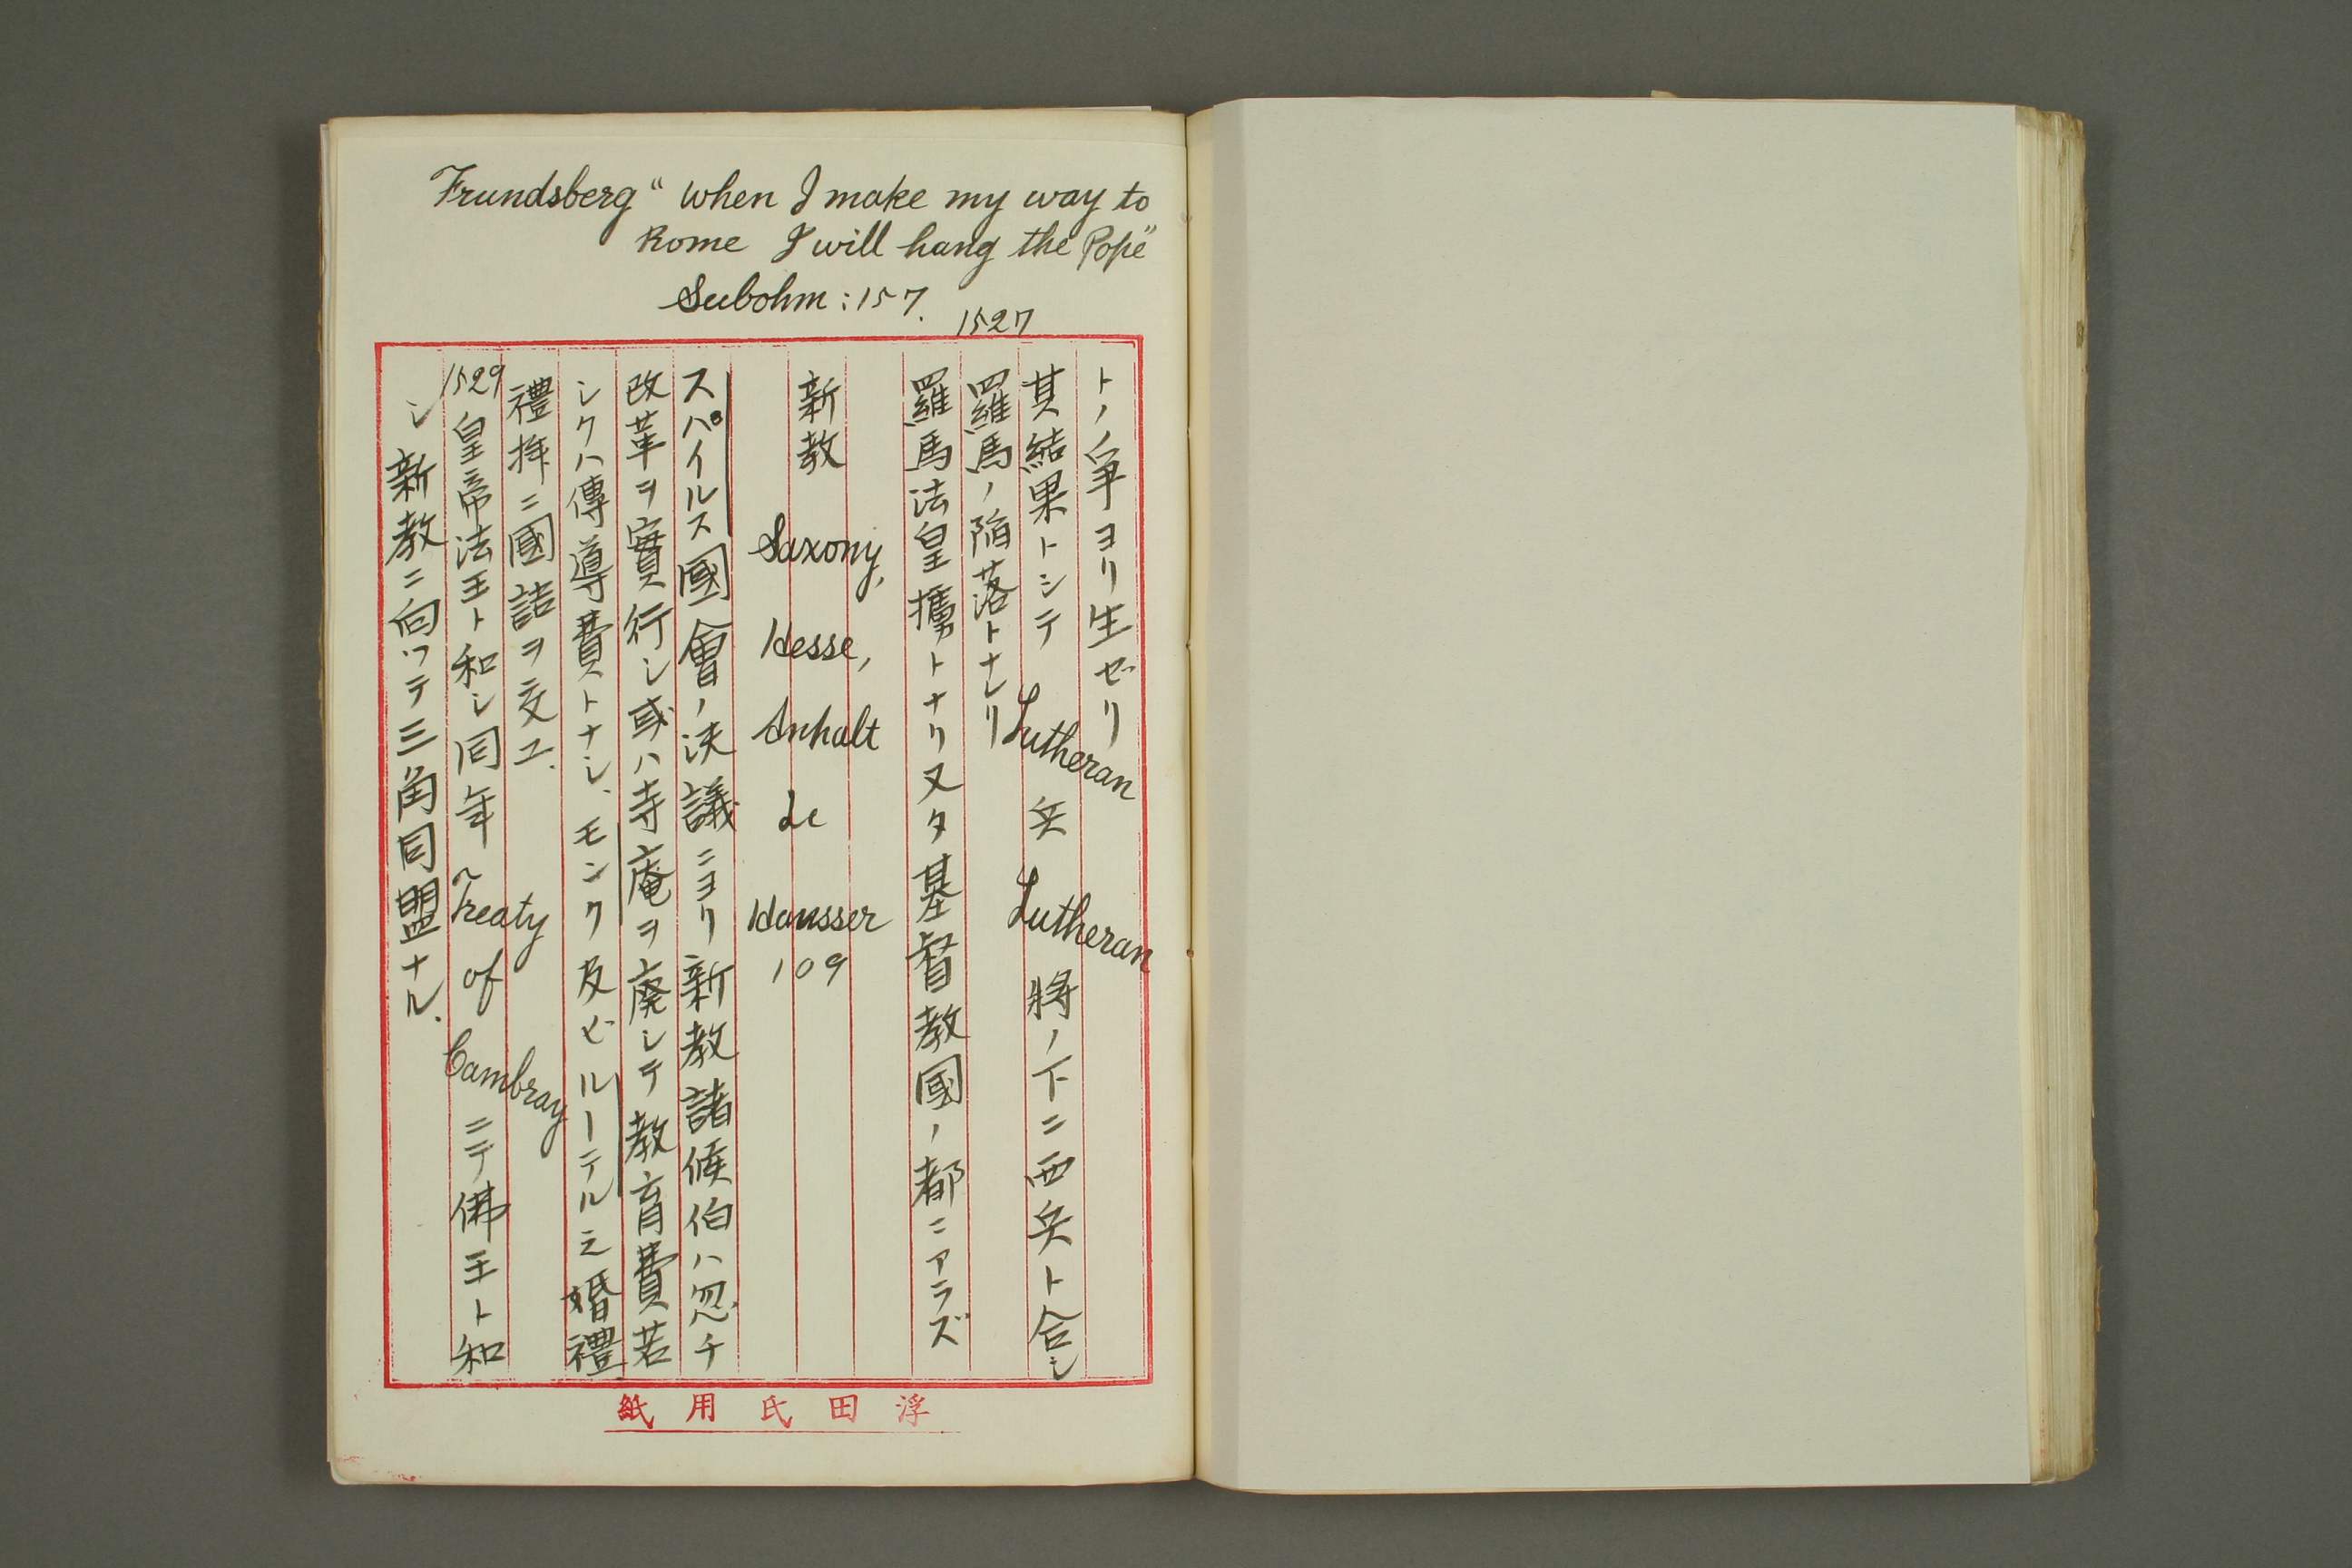 Frundsberg "When I make my way to
Rome I will hang the Pope"
Seebohm: 157.
1527
トノ争ヨリ生ゼリ
其結果トシテ Lutheran 兵 Lutheran 将ノ下ニ西兵ト合シ
羅馬ノ陥落トナレリ
羅馬法皇擄トナリ又タ基督教國ノ都ニアラズ
新教 Saxony, Hesse, Anhalt &c Hausser 109
スパイルス國會ノ决議ニヨリ新教諸候伯ハ忽チ
改革ヲ實行シ或ハ寺庵ヲ廃シテ教育費若
シクハ傳導費トナシ、モンク及ビルーテル之婚禮
禮拝ニ國語ヲ交ユ.
1529 皇帝法王ト和シ同年 Treaty of Cambray ニテ佛王ト和
シ新教ニ向ツテ三角同盟ナル.
浮田氏用紙